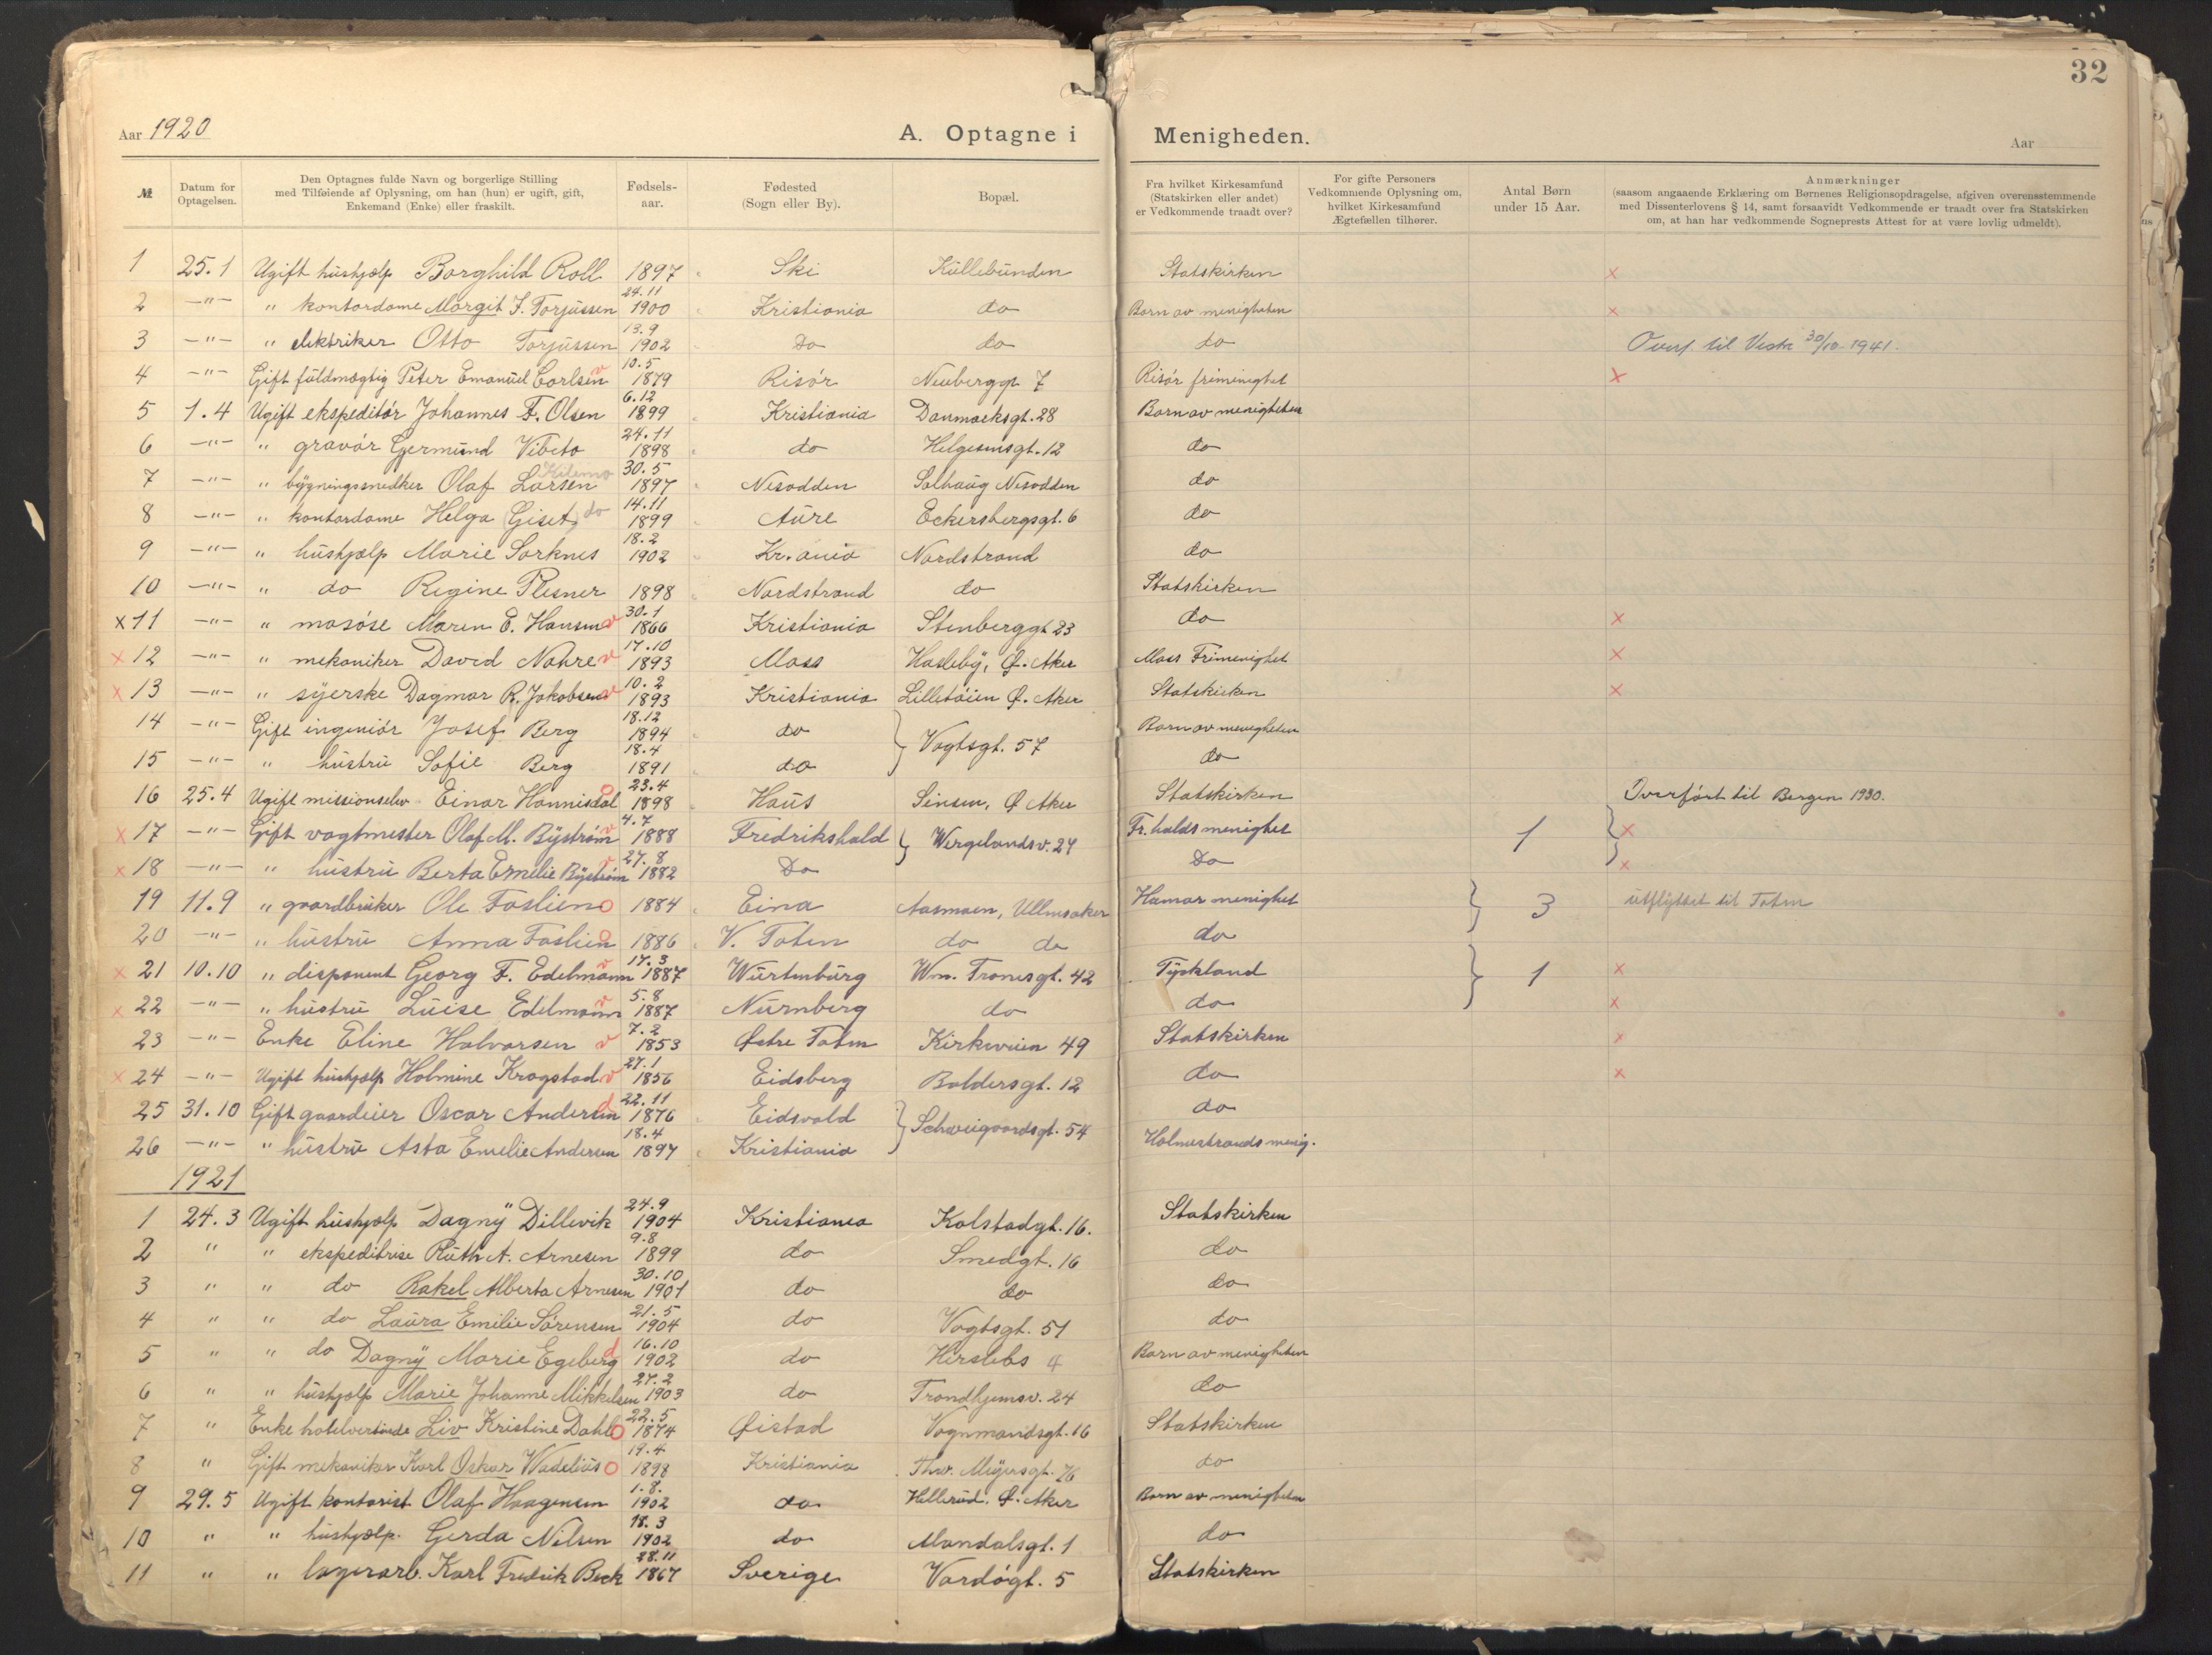 32
Aar 1920 A. Optagne i Menigheden. Aar
№ Datum for Optagelsen. Den Optagnes fulde Navn og borgerlige Stilling med Tilføiende af Oplysning, om han (hun) er ugift, gift, Enkemand (Enke) eller fraskilt. Fødsels-aar. Fødested (Sogn eller By). Bopæl. Fra hvilket Kirkesamfund (Statskirken eller andet) er Vedkommende traadt over? For gifte Personers Vedkommende Oplysning om, hvilket Kirkesamfund Ægtefællen tilhører. Antal Børn under 15 Aar. Anmærkninger (saasom angaaende Erklæring om Børnenes Religionsopdragelse, afgiven overensstemmende med Dissenterlovens § 14, samt forsaavidt Vedkommende er traadt over fra Statskirken om, at han har vedkommende Sogneprests Attest for at være lovlig udmeldt).
1 25.1 Ugift hushjælp Borghild Roll 1897 Ski Kullebunden Statskirken x
2 -"- " kontordame Margit J. Torjussen 24.11 1900 Kristiania do Barn av menigheten x
3 -"- " elektriker Otto Torjussen 13.9 1902 Do do do Overf. til Vestre 30/10-1941.
4 -"- Gift fuldmægtig Peter Emanuel Carlsen v 10.5 1879 Risør Neuberggt 7 Risør frimenighet x
5 1.4 Ugift ekspeditør Johannes F. Olsen 6.12 1899 Kristiania Danmarksgt. 28 Barn av menigheten
6 -"- " gravør Germund Vibeto 24.11 1898 do Helgesensgt. 12 do
7 -"- " bygningssnedker Olaf Larsen Kilemo 30.5 1897 Nesodden Solhaug Nesodden do
8 -"- " kontordame Helga (Giset) do 14.11 1899 Aure Eckersbergsgt. 6 do
9 -"- " hushjælp Marie Sorknes 18.2 1902 Kr.ania Nordstrand do
10 -"- " do Regine Plesner 1898 Nordstrand do Statskirken
x 11 -"- " masøse Maren E. Hansen v 30.1 1866 Kristiania Stenberggt 23 do x
x 12 -"- " mekaniker David Nohre v 17.10 1893 Moss Hasleby, Ø. Aker Moss Frimenighet x
x 13 -"- " syerske Dagmar R. Jakobsen v 10.2 1893 Kristiania Lilletøien Ø. Aker Statskirken x
14 -"- Gift ingeniør Josef Berg 18.12 1894 do } Vogtsgt. 57 Barn av menigheten
15 -"- " hustru Sofie Berg 18.4 1891 do do
16 25.4 Ugift missionselev Einar Hannisdal o 23.4 1898 Haus Sinsen, Ø Aker Statskirken Overført til Bergen 1930.
x 17 -"- Gift vagtmester Olaf M. Byström v 4.7 1888 Fredrikshald } Wergelandsv. 27 Fr.halds menighet 1 } x
x 18 -"- " hustru Berta Emilie Byström v 27.8 1882 Do Do x
19 11.9 " gaardbruker Ole Faslien o 1884 Eina Aasmoen, Ullensaker Hamar menighet } 3 utflyttet til Toten
20 -"- " hustru Anna Faslien o 1886 V. Toten do do do
x 21 10.10 " disponent Georg F. Edelmann v 17.3 1887 Würtenburg Wm. Tranesgt. 42 Tyskland } 1 x
x 22 -"- " hustru Luise Edelmann v 5.8 1887 Nürnberg do do x
23 -"- Enke Eline Halvorsen v 7.2 1853 Østre Toten Kirkeveien 49 Statskirken x
x 24 -"- Ugift hushjælp Holmine Krogstad v 27.1 1856 Eidsberg Baldersgt. 12 do x
25 31.10 Gift gaardeier Oscar Andersen d 22.11 1876 Eidsvold } Schweigaardsgt. 54 do
26 -"- " hustru Asta Emilie Andersen 18.4 1897 Kristiania Holmestrands menig.
1921
1 24.3 Ugift hushjælp Dagny Dillevik 24.9 1904 Kristiania Kolstadgt. 16. Statskirken
2 " " ekspeditrise Ruth A. Arnesen 9.8 1899 do Smedgt. 16 do
3 " " do Rakel Alberta Arnesen 30.10 1901 do do do
4 " " do Laura Emilie Sørensen 21.5 1904 do Vogtsgt. 51 do
5 " " do Dagny Marie Egeberg d 16.10 1902 do Herslebs 4 Barn av menigheten
6 " " hushjælp Marie Johanne Mikkelsen 27.2 1903 do Trondhjemsv. 24 do
7 " Enke hotelvertinde Liv Kristine Dahl o 22.5 1874 Øistad Vognmandsgt. 16 Statskirken
8 " Gift mekaniker Karl Oskar Wadelius o 19.4 1898 Kristiania Thv. Meyersgt. 76 do
9 29.5 Ugift kontorist Olaf Haagensen 1.8. 1902 do Hellerud. Ø. Aker Barn av menigheten
10 " " hushjælp. Gerda Nilsen 18.3 1902 do Mandalsgt. 1 do
11 " " lagerarb. Karl Fredrik Beck 28.11 1867 Sverige Vardøgt. 5 Statskirken